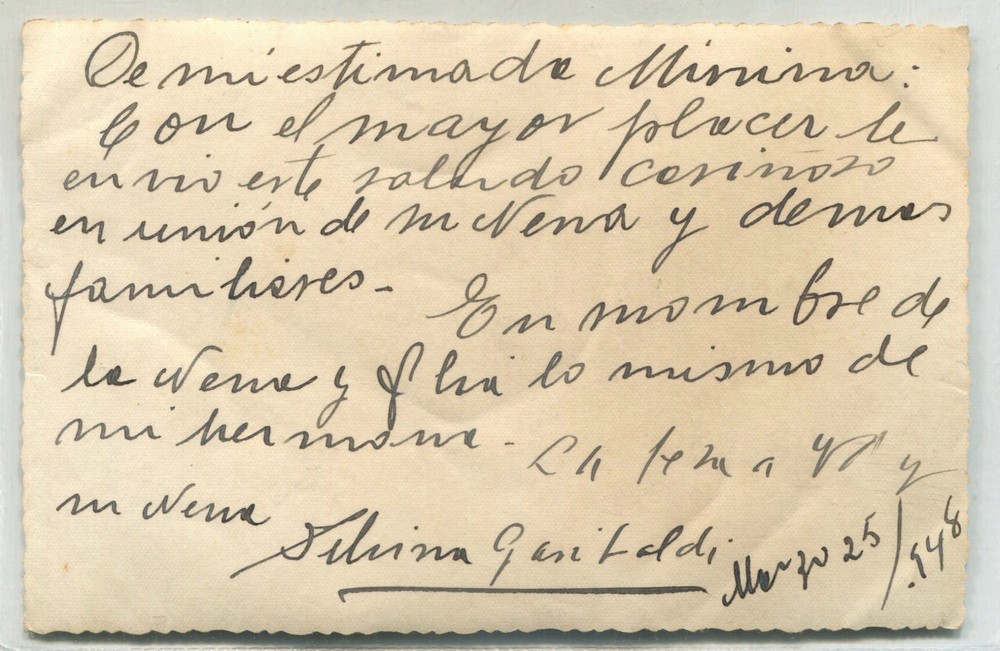 De mi estimada Minina:
Con el mayor placer le
envio este saludo cariñoso
en unión de su Nena y demas
familiares -
En nombre de
la Nena y flia lo mismo de
mi hermana -
La besa a Vd y
su Nena
Silvina Garibaldi
Marzo 25/948